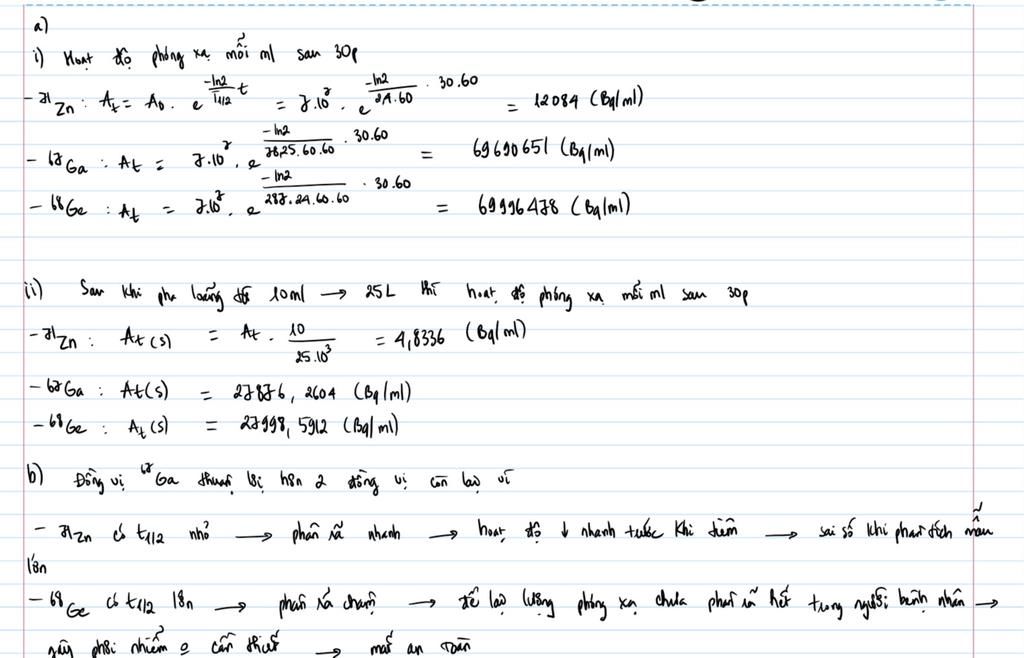 a)
i) Hoạt độ phóng xạ mỗi ml sau 30p
- ⁷¹Zn : Aₜ = A₀ . e^(-ln2/T₁/₂ t) = 7.10⁷ . e^(-ln2/2,4.60 . 30.60) = 12084 (Bq/ml)
- ⁶⁷Ga : Aₜ = 7.10⁷ . e^(-ln2/78,25.60.60 . 30.60) = 69690651 (Bq/ml)
- ⁶⁸Ge : Aₜ = 7.10⁷ . e^(-ln2/287.24.60.60 . 30.60) = 69996478 (Bq/ml)
ii) Sau khi pha loãng từ 10ml → 25L thì hoạt độ phóng xạ mỗi ml sau 30p
- ⁷¹Zn : Aₜ(s) = Aₜ . 10/25.10³ = 4,8336 (Bq/ml)
- ⁶⁷Ga : Aₜ(s) = 27876,2604 (Bq/ml)
- ⁶⁸Ge : Aₜ(s) = 27998,5912 (Bq/ml)
b) Đồng vị ⁶⁷Ga thuận lợi hơn 2 đồng vị còn lại vì
- ⁷¹Zn có t₁/₂ nhỏ → phân rã nhanh → hoạt độ ↓ nhanh trước khi tiêm → sai số khi phân tích mẫu
lớn
- ⁶⁸Ge có t₁/₂ lớn → phân rã chậm → để lại lượng phóng xạ chưa phân rã hết trong người bệnh nhân →
gây phơi nhiễm cần thiết → mất an toàn